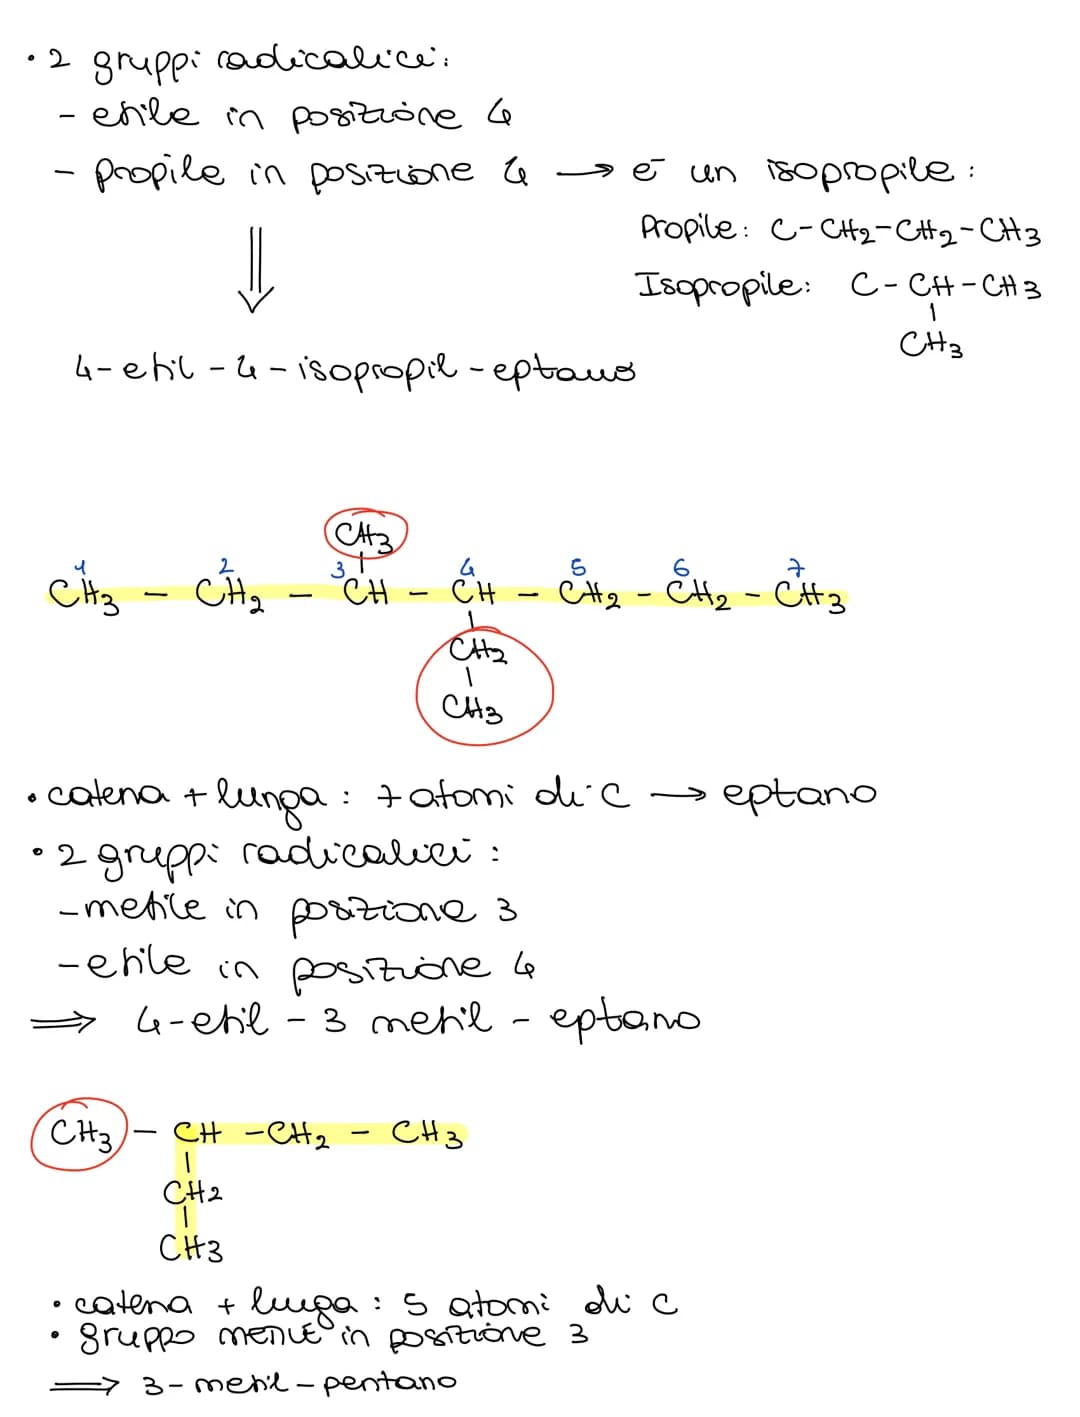 • 2 gruppi radicalici:
- etile in posizione 4
- propile in posizione 4 → è un isopropile:
Propile: C-CH2-CH2-CH3
Isopropile: C-CH-CH3
CH3
4-etil-4-isopropil-eptano
CH3
1 2 3 4 5 6 7
CH3 - CH2 - CH - CH - CH2 - CH2 - CH3
CH2
CH3
• catena + lunga: 7 atomi di C → eptano
• 2 gruppi radicalici:
- metile in posizione 3
- etile in posizione 4
⇒ 4-etil-3 metil-eptano
CH3 - CH - CH2 - CH3
CH2
CH3
• catena + lunga: 5 atomi di C
• gruppo METILE in posizione 3
⇒ 3-metil-pentano